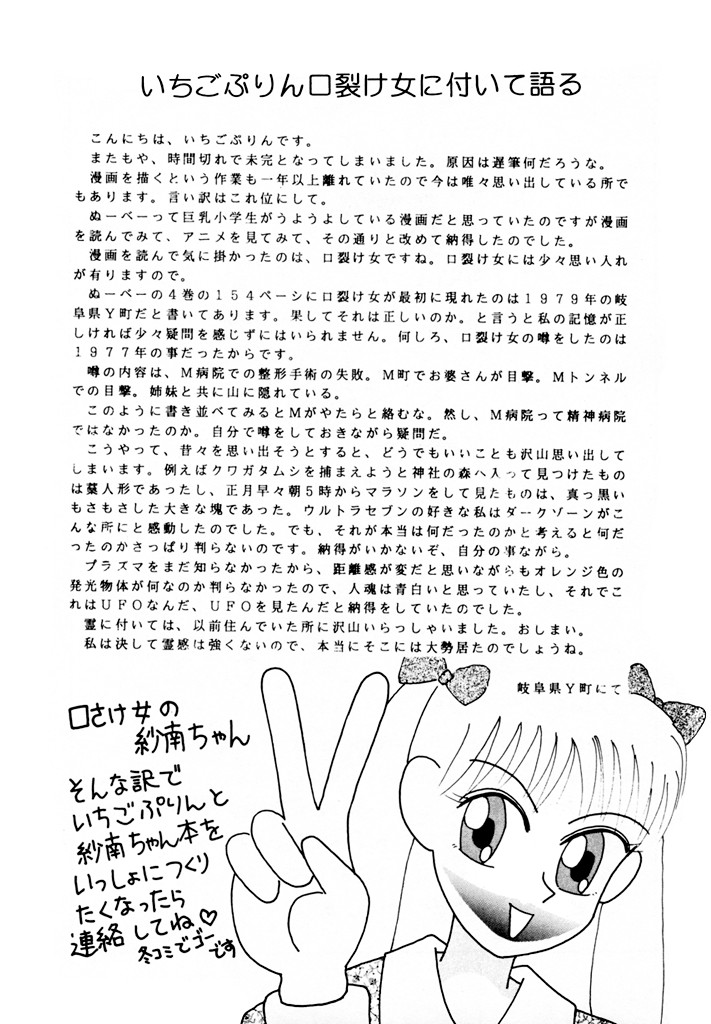 いちごぷりん口裂け女に付いて語る
こんにちは、いちごぷりんです。
またもや、時間切れで未完となってしまいました。原因は遅筆何だろうな。
漫画を描くという作業も一年以上離れていたので今は唯々思い出している所で
もあります。言い訳はこれ位にして。
ぬーべーって巨乳小学生がうようよしている漫画だと思っていたのですが漫画
を読んでみて、アニメを見てみて、その通りと改めて納得したのでした。
漫画を読んで気に掛かったのは、口裂け女ですね。口裂け女には少々思い入れ
が有りますので。
ぬーべーの4巻の154ページに口裂け女が最初に現れたのは1979年の岐
阜県Y町だと書いてあります。果してそれは正しいのか。と言うと私の記憶が正
しければ少々疑問を感じずにはいられません。何しろ、口裂け女の噂をしたのは
1977年の事だったからです。
噂の内容は、M病院での整形手術の失敗。M町でお婆さんが目撃。Mトンネル
での目撃。姉妹と共に山に隠れている。
このように書き並べてみるとMがやたらと絡むな。然し、M病院って精神病院
ではなかったのか。自分で噂をしておきながら疑問だ。
こうやって、昔々を思い出そうとすると、どうでもいいことも沢山思い出して
しまいます。例えばクワガタムシを捕まえようと神社の森へ入って見つけたもの
は藁人形であったし、正月早々朝5時からマラソンをして見たものは、真っ黒い
もさもさした大きな塊であった。ウルトラセブンの好きな私はダークゾーンがこ
んな所にと感動したのでした。でも、それが本当は何だったのかと考えると何だ
ったのかさっぱり判らないのです。納得がいかないぞ、自分の事ながら。
プラズマをまだ知らなかったから、距離感が変だと思いながらもオレンジ色の
発光物体が何なのか判らなかったので、人魂は青白いと思っていたし、それでこ
れはUFOなんだ、UFOを見たんだと納得をしていたのでした。
霊に付いては、以前住んでいた所に沢山いらっしゃいました。おしまい。
私は決して霊感は強くないので、本当にそこには大勢居たのでしょうね。
岐阜県Y町にて
口さけ女の
紗南ちゃん
そんな訳で
いちごぷりんと
紗南ちゃん本を
いっしょにつくり
たくなったら
連絡してね♡
冬コミでゴーです